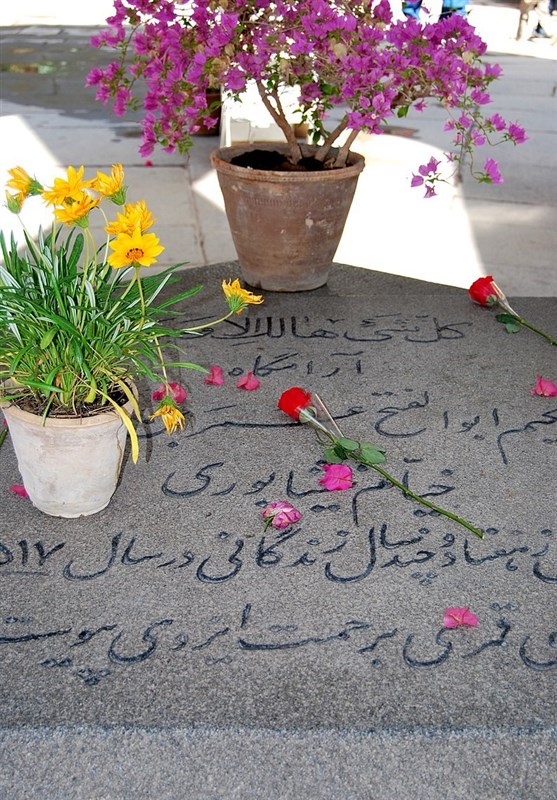 کل شیئ هالک الا
آرامگاه
ابوالفتح عمر
خیام نیشابوری
هفتاد و چند سال زندگانی در سال ۵۱۷
قمری برحمت ایزدی پیوست